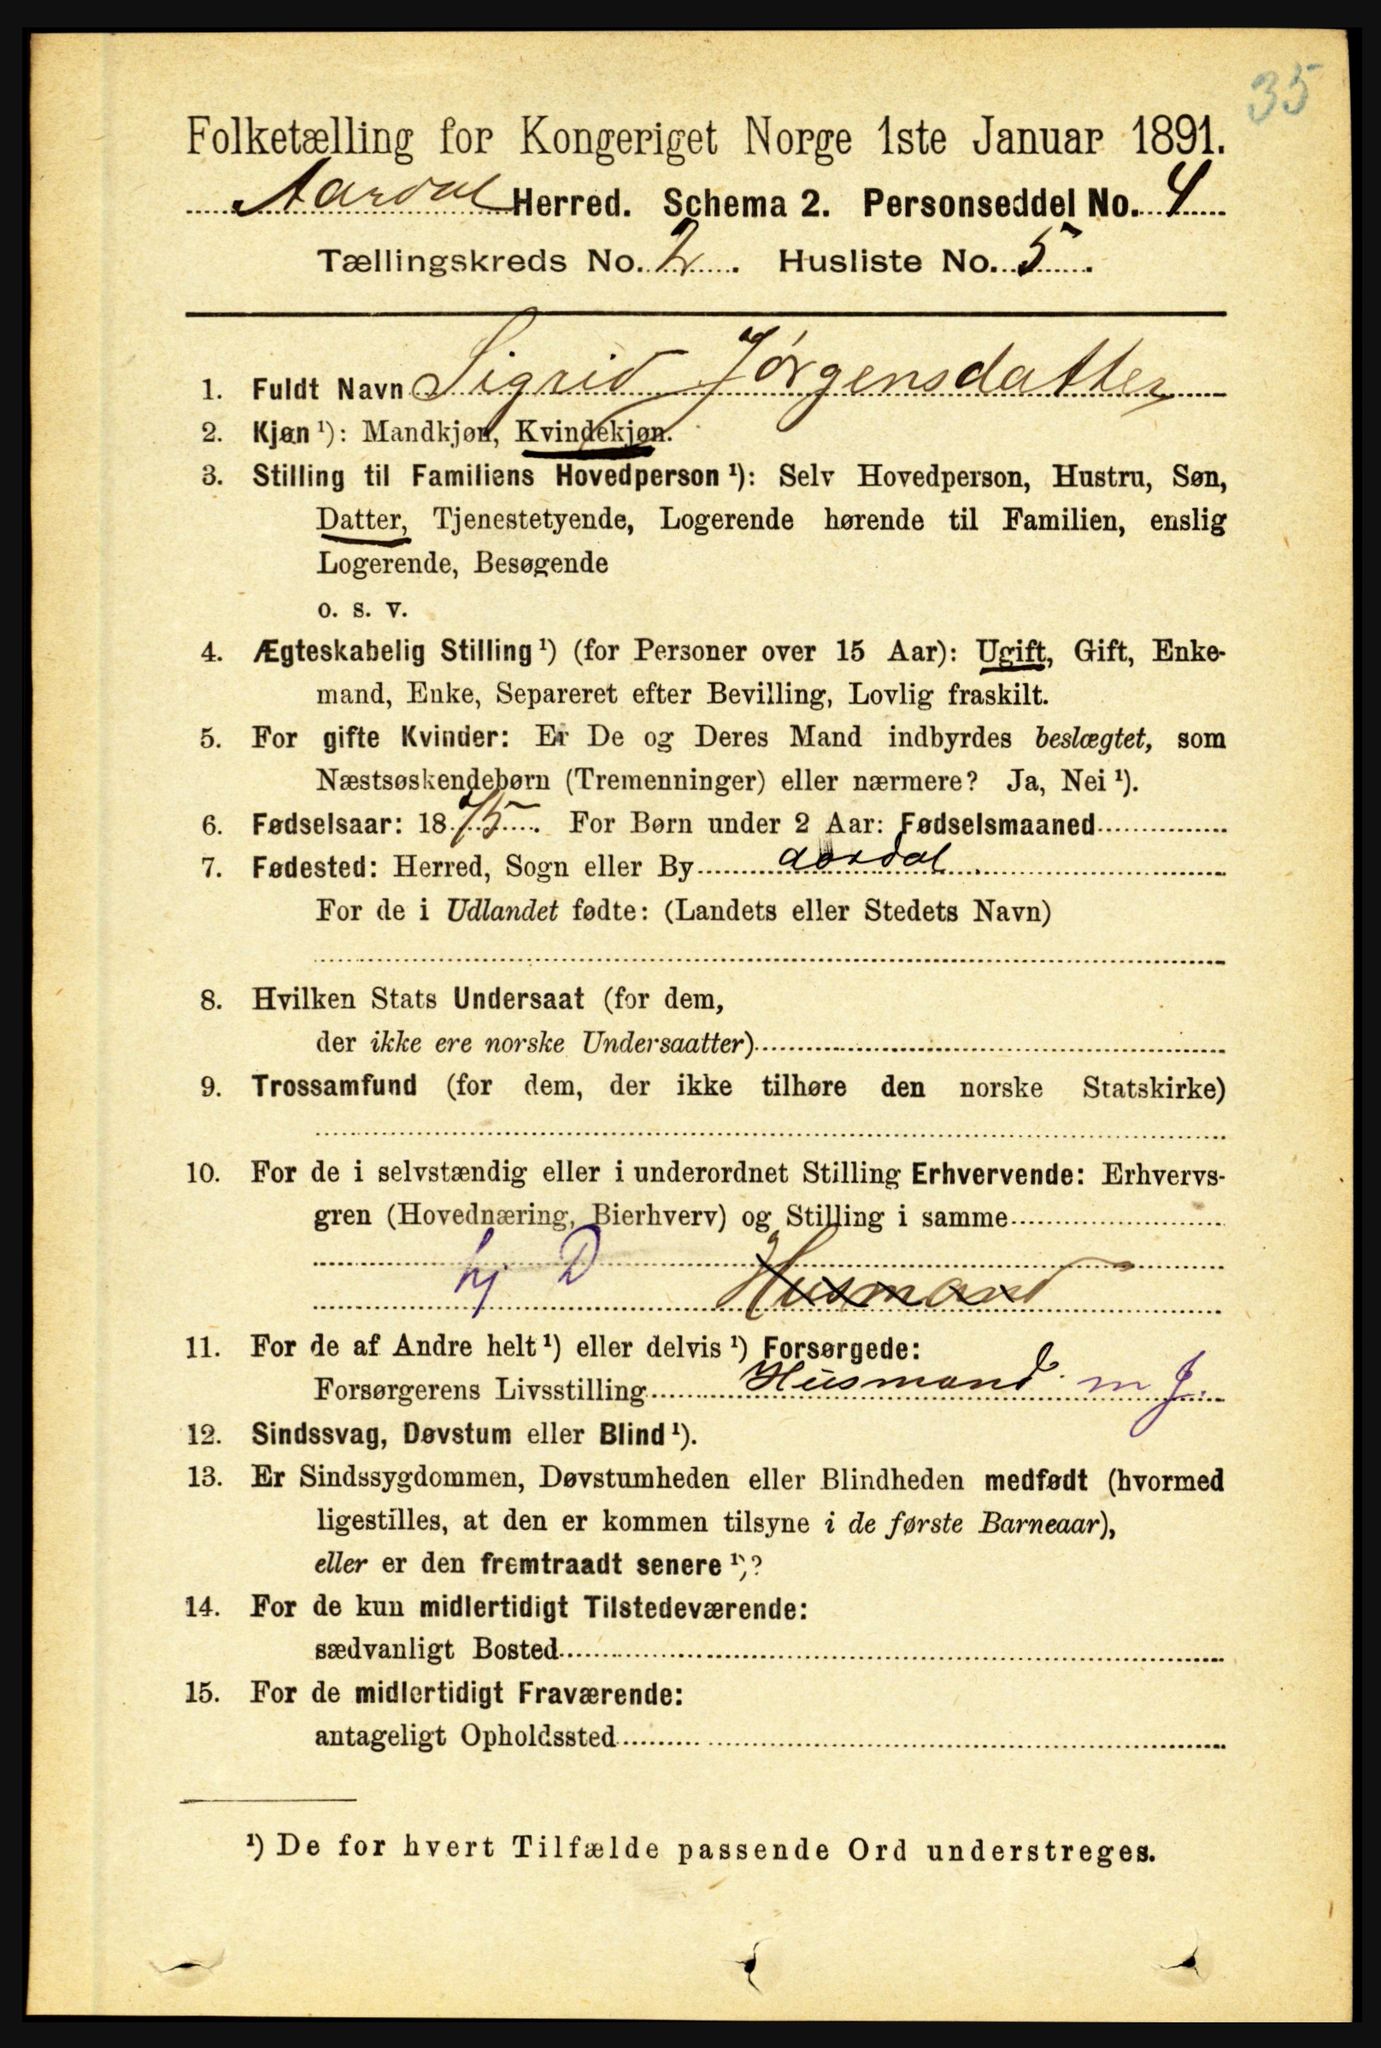 35
Folketælling for Kongeriget Norge 1ste Januar 1891.
Aardal Herred. Schema 2. Personseddel No. 4
Tællingskreds No. 2. Husliste No. 5.
1. Fuldt Navn Sigrid Jørgensdatter
2. Kjøn ¹): Mandkjøn, Kvindekjøn.
3. Stilling til Familiens Hovedperson ¹): Selv Hovedperson, Hustru, Søn,
Datter, Tjenestetyende, Logerende hørende til Familien, enslig
Logerende, Besøgende
o. s. v.
4. Ægteskabelig Stilling ¹) (for Personer over 15 Aar): Ugift, Gift, Enke-
mand, Enke, Separeret efter Bevilling, Lovlig fraskilt.
5. For gifte Kvinder: Er De og Deres Mand indbyrdes beslægtet, som
Næstsøskendebørn (Tremenninger) eller nærmere? Ja, Nei ¹).
6. Fødselsaar: 1875. For Børn under 2 Aar: Fødselsmaaned
7. Fødested: Herred, Sogn eller By Aardal
For de i Udlandet fødte: (Landets eller Stedets Navn)
8. Hvilken Stats Undersaat (for dem,
der ikke ere norske Undersaatter)
9. Trossamfund (for dem, der ikke tilhøre den norske Statskirke)
10. For de i selvstændig eller i underordnet Stilling Erhvervende: Erhvervs-
gren (Hovednæring, Bierhverv) og Stilling i samme
hj D Husmand
11. For de af Andre helt ¹) eller delvis ¹) Forsørgede:
Forsørgerens Livsstilling Husmand m J.
12. Sindssvag, Døvstum eller Blind ¹).
13. Er Sindssygdommen, Døvstumheden eller Blindheden medfødt (hvormed
ligestilles, at den er kommen tilsyne i de første Barneaar),
eller er den fremtraadt senere ¹)?
14. For de kun midlertidigt Tilstedeværende:
sædvanligt Bosted
15. For de midlertidigt Fraværende:
antageligt Opholdssted
¹) De for hvert Tilfælde passende Ord understreges.